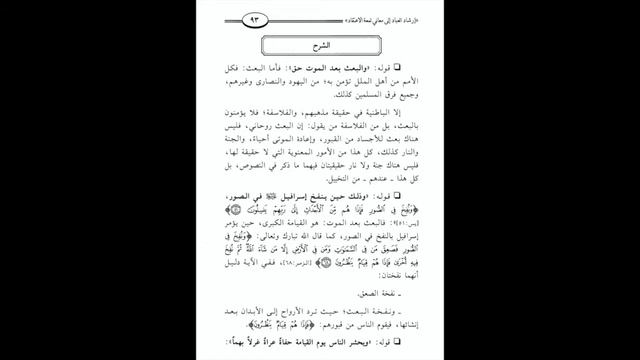 «إرشاد العباد إلى معاني لمعة الاعتقاد»
٩٣
الشرح
❑ قوله: «والبعث بعد الموت حق»: فأما البعث: فكل
الأمم من أهل الملل تؤمن به؛ من اليهود والنصارى وغيرهم،
وجميع فرق المسلمين كذلك.
إلا الباطنية في حقيقة مذهبهم، والفلاسفة؛ فلا يؤمنون
بالبعث، بل من الفلاسفة من يقول: إن البعث روحاني، فليس
هناك بعث للأجساد من القبور، وإعادة الموتى أحياءً، والجنة
والنار كذلك، كل هذا من الأمور المعنوية التي لا حقيقة لها،
فليس هناك جنة ولا نار حقيقيتان فيهما ما ذكر في النصوص، بل
كل هذا ـ عندهم ـ من التخييل.
❑ قوله: «وذلك حين ينفخ إسرافيل ﷺ في الصور،
﴿وَنُفِخَ فِي ٱلصُّورِ فَإِذَا هُم مِّنَ ٱلۡأَجۡدَاثِ إِلَىٰ رَبِّهِمۡ يَنسِلُونَ ۝٥١﴾
[يس: ٥١]»: فالبعث بعد الموت: هو القيامة الكبرى، حين يؤمر
إسرافيل بالنفخ في الصور، كما قال الله تبارك وتعالى: ﴿وَنُفِخَ فِي
ٱلصُّورِ فَصَعِقَ مَن فِي ٱلسَّمَٰوَٰتِ وَمَن فِي ٱلۡأَرۡضِ إِلَّا مَن شَآءَ ٱللَّهُۖ ثُمَّ نُفِخَ
فِيهِ أُخۡرَىٰ فَإِذَا هُمۡ قِيَامٞ يَنظُرُونَ ۝٦٨﴾ [الزمر: ٦٨]، ففي الآية دليل
أنهما نفختان:
ـ نفخة الصعق.
ـ ونفخة البعث؛ حيث ترد الأرواح إلى الأبدان بعد
إنشائها، فيقوم الناس من قبورهم: ﴿فَإِذَا هُمۡ قِيَامٞ يَنظُرُونَ﴾.
❑ قوله: «ويحشر الناس يوم القيامة حفاةً عراةً غرلاً بهماً»: